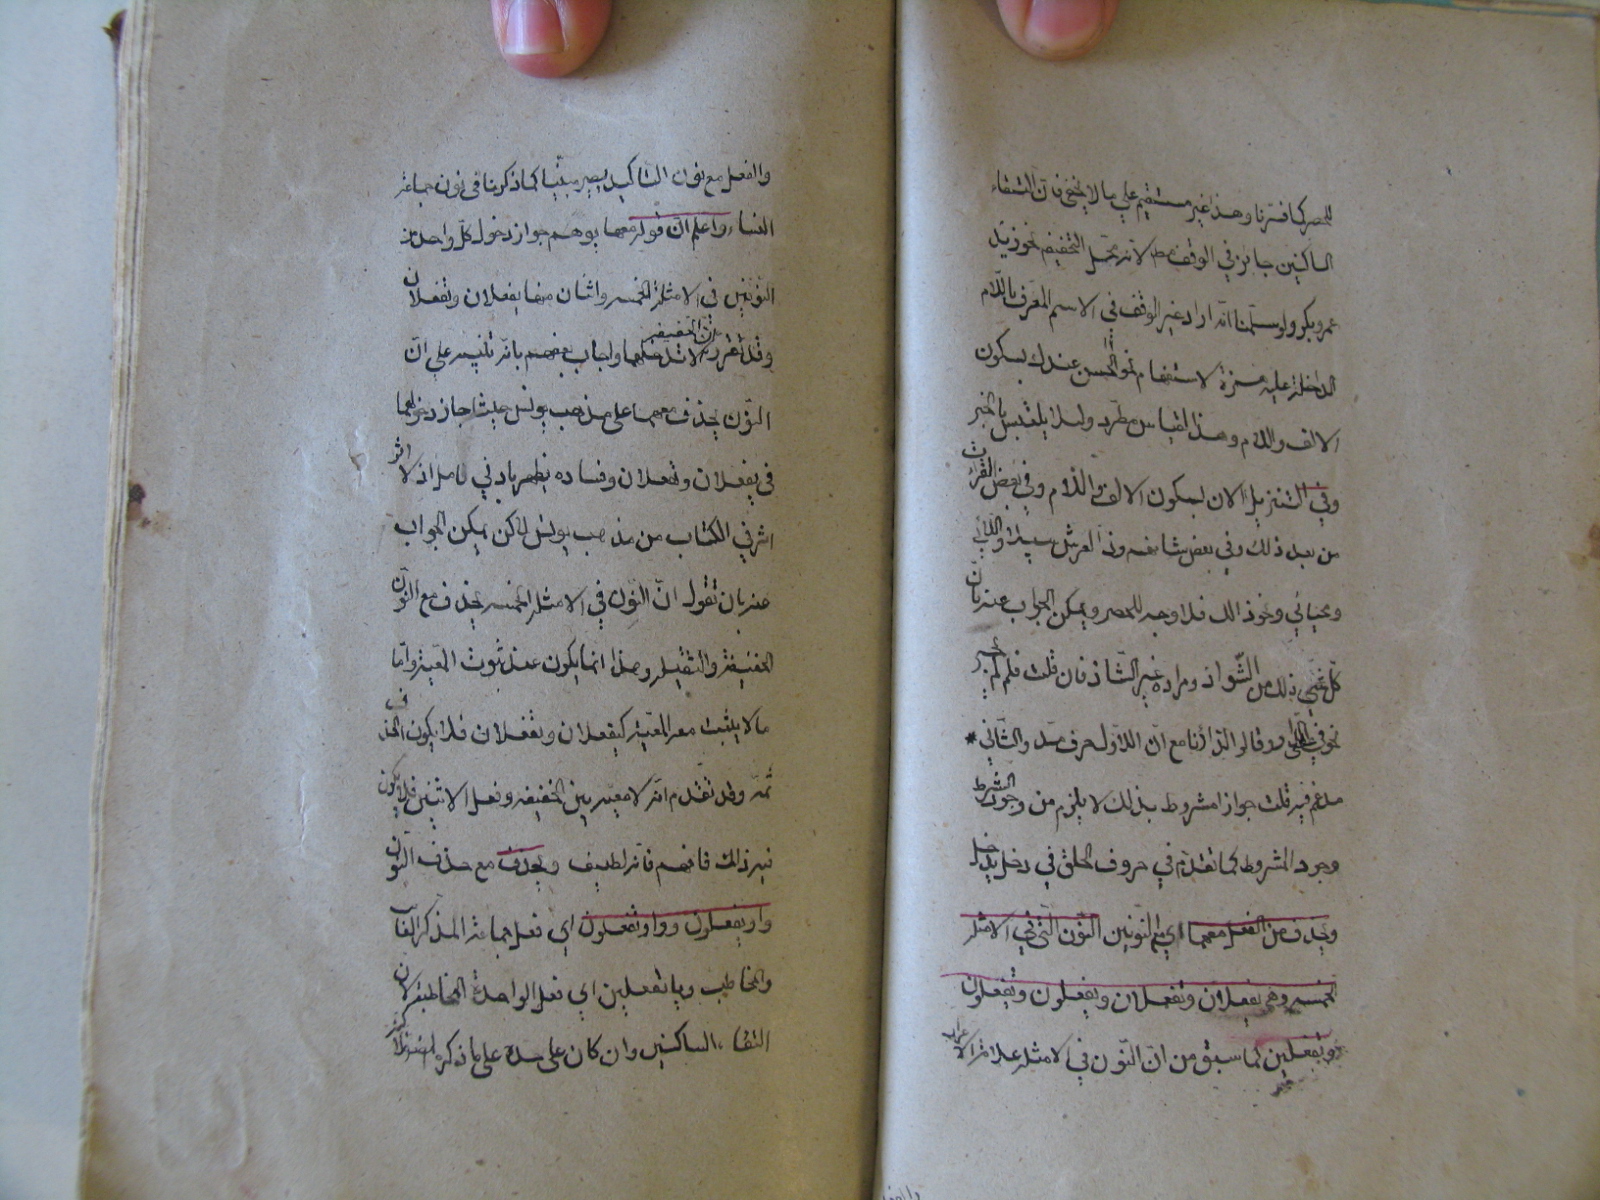 للحصر كما فسرنا وهذا غير مستقيم على ما لا يخفى فان التقاء
الساكنين جائز في الوقف مط لانه محل التخفيف نحو زيد
عمرو بكر ولو سلمنا انه اراد غير الوقف في الاسم المعرف باللام
الداخلة عليه همزة الاستفهام نحو الحسن عندك بسكون
الالف واللام وهذا القياس مطرد ولئلا يلتبس بالخبر
وفي التنزيل الان بسكون الالف واللام وفي بعض القراآت
من بعد ذلك وفي بعض شانهم وذا العرش سبيلا واللائي
ومحياي ونحو ذالك فلا وجه للحصر ويمكن الجواب عنه بان
كل ذلك من الشواذ ومراده غير الشاذ فان قلت فلم لم يجز
نحو في الدار وقالوا ادارأنا مع ان الاول حرف مد والثاني
مدغم فيه قلت جواز امشروط بذلك لا يلزم من وجود الشرط
وجود المشروط كما تقدم في حروف الحلق في دخل يدخل
ويحذف من الفعل معهما اي مع النونين النون التي في الامثلة
الخمسة وهي يفعلان وتفعلان ويفعلون وتفعلون
وتفعلين كما سبق من ان النون في الامثلة علامة الاعراب
والفعل مع نون التاكيد يصير مبنيا كما ذكرنا في نون جماعة
النساء واعلم ان قوله معهما يوهم جواز دخول كل واحد من
النونين في الامثلة الخمسة واثنان منها يفعلان وتفعلان
وقد تقرر ان الخفيفة لا تدخلهما واجاب بعضهم بانه تنبيه على ان
النون يحذف معهما على مذهب يونس حيث اجاز دخولهما
في يفعلان وتفعلان وفساده يظهر بادني تامل اذ لا اثر
اثر في الكتاب من مذهب يونس لكن يمكن الجواب
عنه بان تقول ان النون في الامثلة الخمسة يحذف مع النون
الخفيفة والثقيلة وهذا انما يكون عند ثبوت المعية واما
ما لا يثبت معه المعية كيفعلان وتفعلان فلا يكون الحذف
ثمه وقد تقدم انه لا معية بين الخفيفه وفعل الاثنين فلا يكون
فيه ذالك فافهم فانه لطيف ويحذف مع حذف النون
واو يفعلون وواو تفعلون اي فعل جماعة المذكر الغائب
والمخاطب وياء تفعلين اي فعل الواحدة المخاطبة لان
التقاء الساكنين وان كان على حده على ما ذكره المصنف